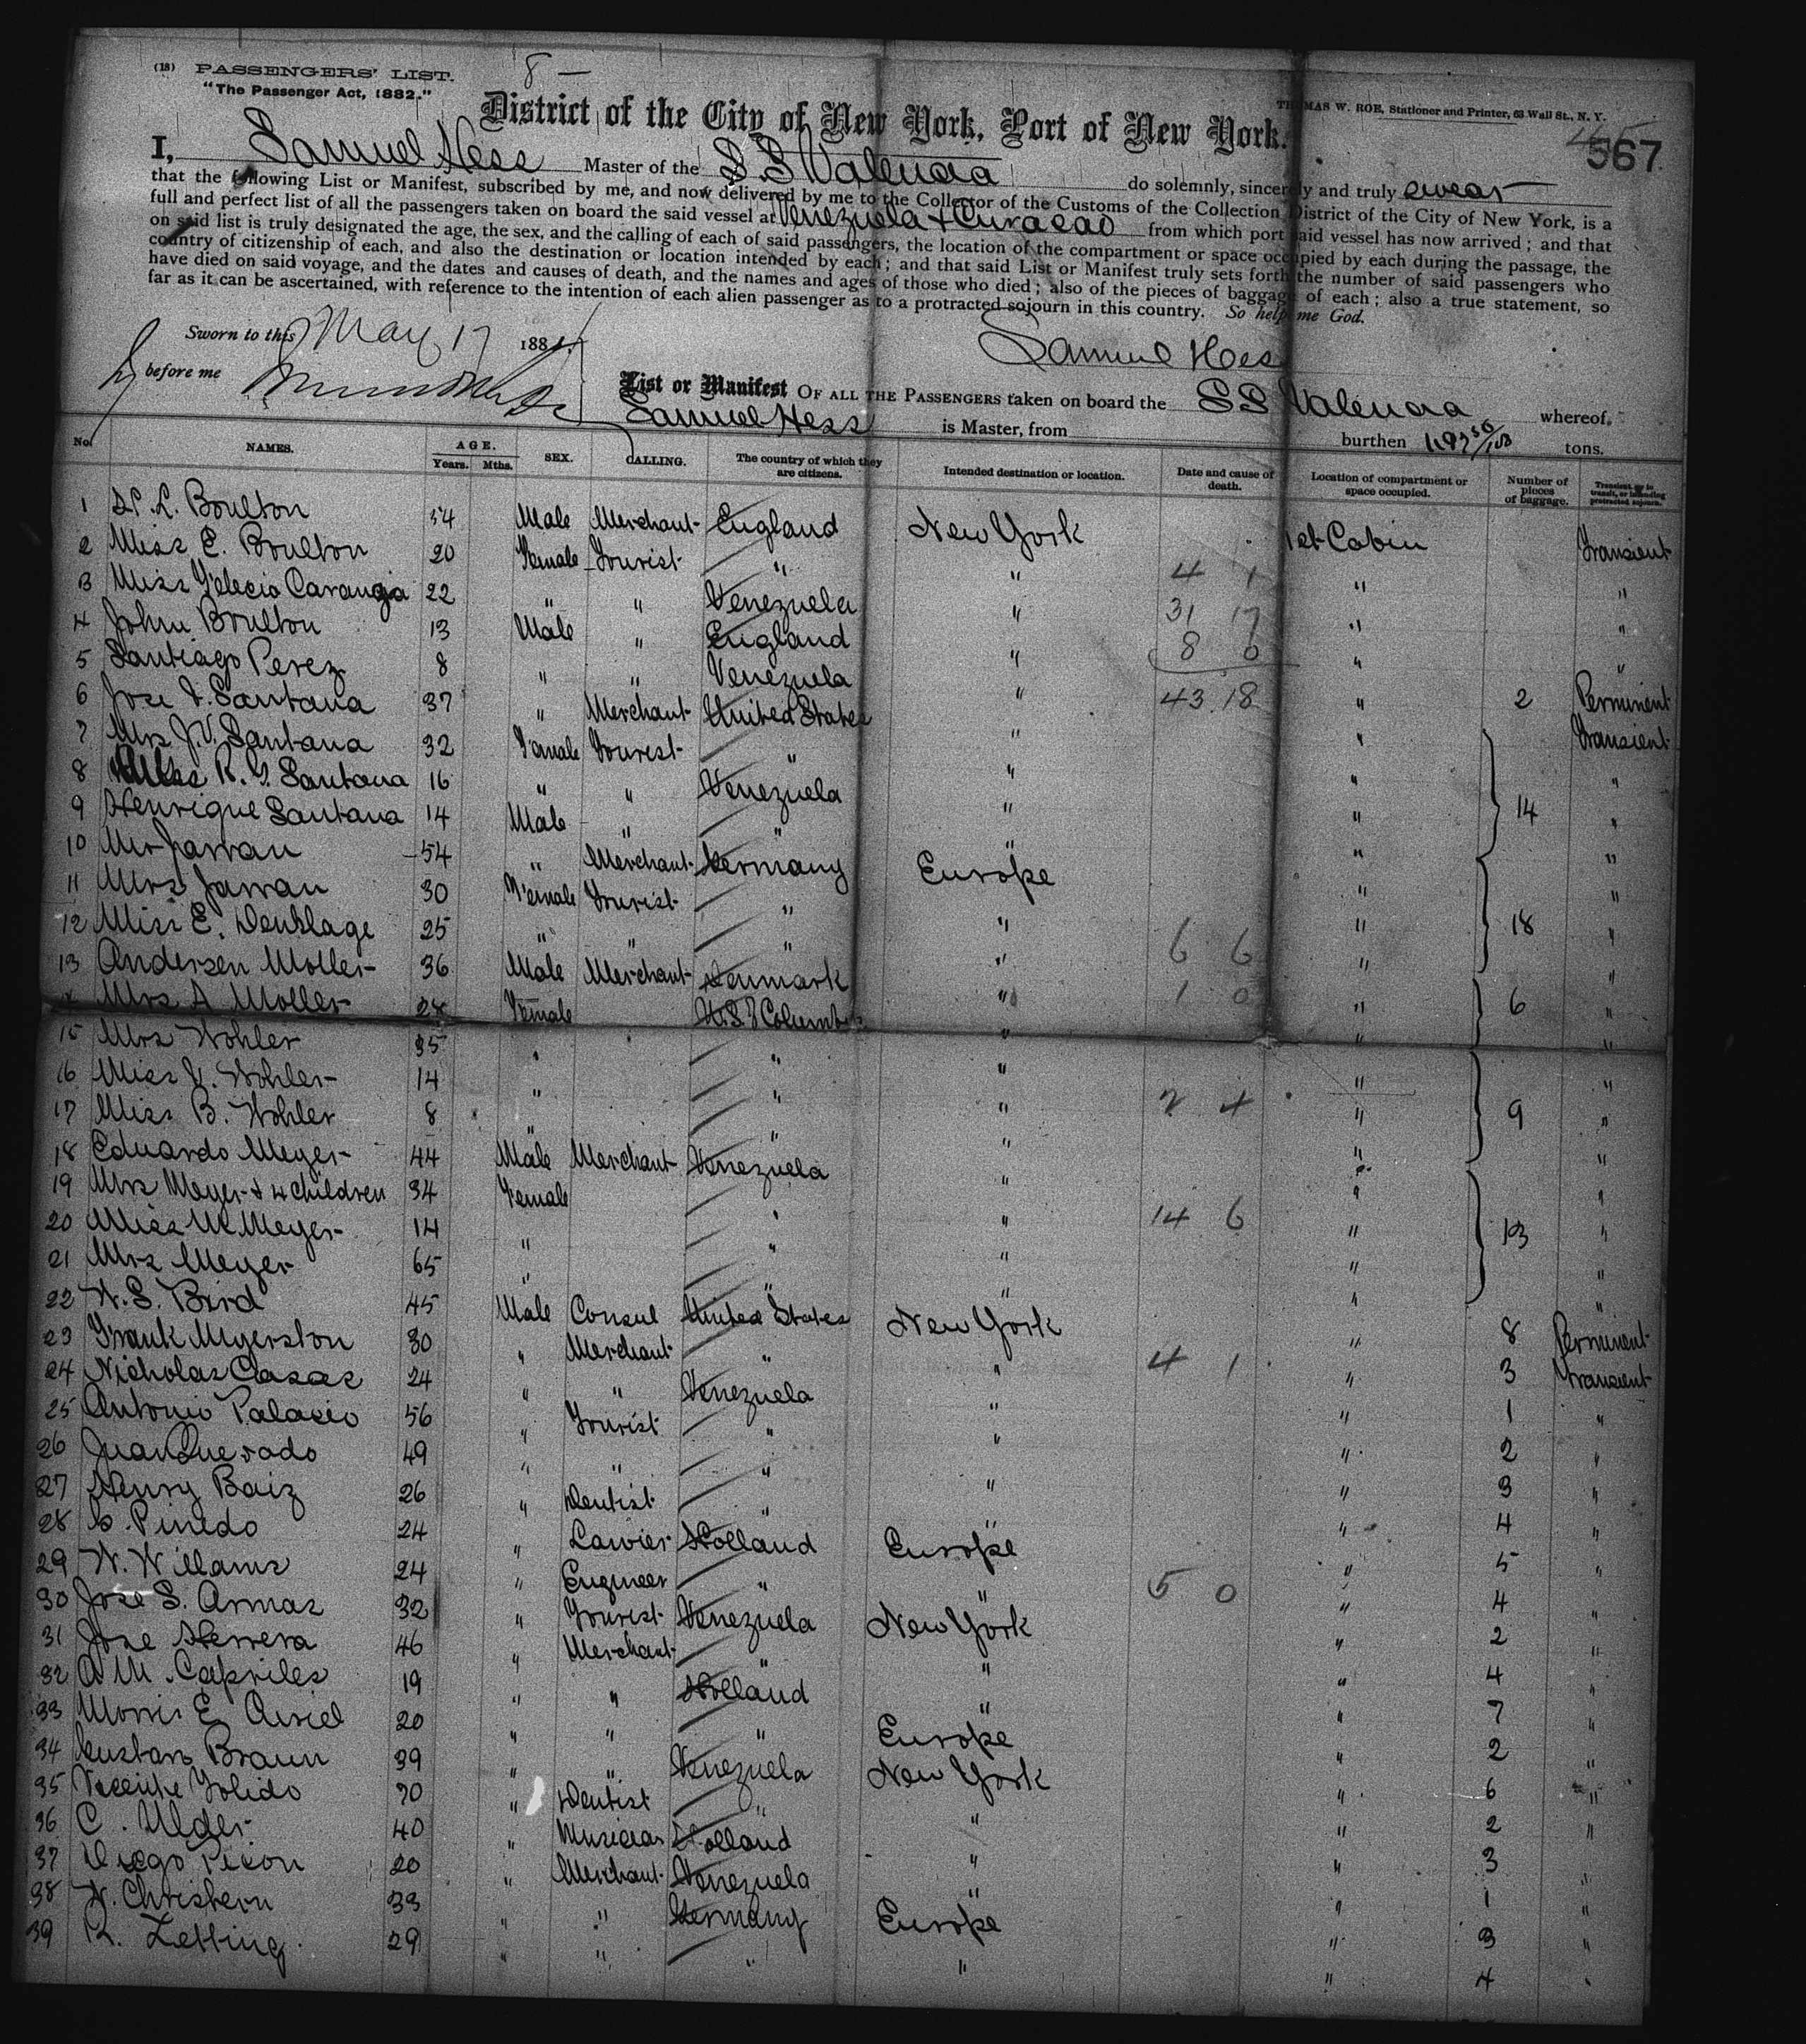 (18) PASSENGERS' LIST. 8 —
"The Passenger Act, 1882."
THOMAS W. ROE, Stationer and Printer, 63 Wall St., N. Y.
District of the City of New York, Port of New York.
567
I, Samuel Hess Master of the S.S Valencia do solemnly, sincerely and truly swear
that the following List or Manifest, subscribed by me, and now delivered by me to the Collector of the Customs of the Collection District of the City of New York, is a
full and perfect list of all the passengers taken on board the said vessel at Venezuela + Curacao from which port said vessel has now arrived; and that
on said list is truly designated the age, the sex, and the calling of each of said passengers, the location of the compartment or space occupied by each during the passage, the
country of citizenship of each, and also the destination or location intended by each; and that said List or Manifest truly sets forth the number of said passengers who
have died on said voyage, and the dates and causes of death, and the names and ages of those who died; also of the pieces of baggage of each; also a true statement, so
far as it can be ascertained, with reference to the intention of each alien passenger as to a protracted sojourn in this country. So help me God.
Sworn to this May 17 188
Samuel Hess
before me
List or Manifest OF ALL THE PASSENGERS taken on board the SS Valencia whereof
Samuel Hess is Master, from burthen tons.
No. NAMES. AGE. Years. Mths. SEX. CALLING. The country of which they are citizens. Intended destination or location. Date and cause of death. Location of compartment or space occupied. Number of pieces of baggage. Transient, or in transit, or intending protracted sojourn.
1 H. L. Boulton 54 Male Merchant England New York 1st Cabin Transient
2 Miss E. Boulton 20 Female Tourist " " 4 1 " "
3 Miss 22 " " Venezuela " 31 17 " "
4 John Boulton 13 Male " England " 8 0 " "
5 Santiago Perez 8 " " Venezuela "
6 Jose V. Santana 37 " Merchant United States " 43 18 " 2 Perminent
7 Mrs J. V. Santana 32 Female Tourist " " " Transient
8 Miss R. Santana 16 " " Venezuela " " "
9 Henrique Santana 14 Male " " " " 14 "
10 Mr Jarran 54 " Merchant Germany Europe " "
11 Mrs Jarran 30 Female Tourist " " "
12 Miss E. Denklage 25 " " " " 6 6 " 18 "
13 Andersen Moller 36 Male Merchant Denmark " 1 0 " "
Mrs A Moller 24 Female U.S. of Columbia " " 6 "
15 Mrs Wohler 35 " " " " "
16 Miss V. Wohler 14 " " " " "
17 Miss B. Wohler 8 " " " 2 4 " 9 "
18 Eduardo Meyer 44 Male Merchant Venezuela " " "
19 Mrs Meyer & 4 children 34 Female " " " "
20 Miss M. Meyer 14 " " " 14 6 " 13 "
21 Mrs Meyer 65 " " " " "
22 W. S. Bird 45 Male Consul United States New York " 8 Perminent
23 Frank Myerston 30 " Merchant " " 4 1 " 3 Transient
24 Nicholas Casas 24 " " Venezuela " " 1 "
25 Antonio Palacio 56 " Tourist " " " 2 "
26 Juan Quevado 49 " " " " " 3 "
27 Henry Baiz 26 " Dentist " " " 4 "
28 Pinedo 24 " Lawier Holland Europe " 5 "
29 W. Willams 24 " Engineer " " 5 0 " 4 "
30 Jose S. Armas 32 " Tourist Venezuela New York " 2 "
31 Jose Herrera 46 " Merchant " " " 4 "
32 A M. Capriles 19 " " Holland " " 7 "
33 Morris E 20 " " " Europe " 2 "
34 Gustav Braun 39 " " Venezuela New York " 6 "
35 Vicente Tolido 70 " Dentist " " " 2 "
36 C. Ulder 40 " Musician Holland " " 3 "
37 Diego Picon 20 " Merchant Venezuela " " 1 "
38 W. Christern 33 " " Germany Europe " 3 "
39 R. Zetting 29 " " " " " 4 "